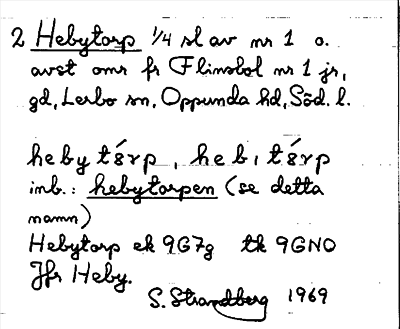 2 Hebytorp 1/4 sl av nr 1 o.
avst omr fr Flinsbol nr 1 jr,
gd, Lerbo sn, Oppunda hd, Söd. l.
heby tórp, hebı tórp
inb.: hebytorpen (se detta
namn)
Hebytorp ek 9G7g tk 9GNO
Jfr Heby.
S. Strandberg 1969